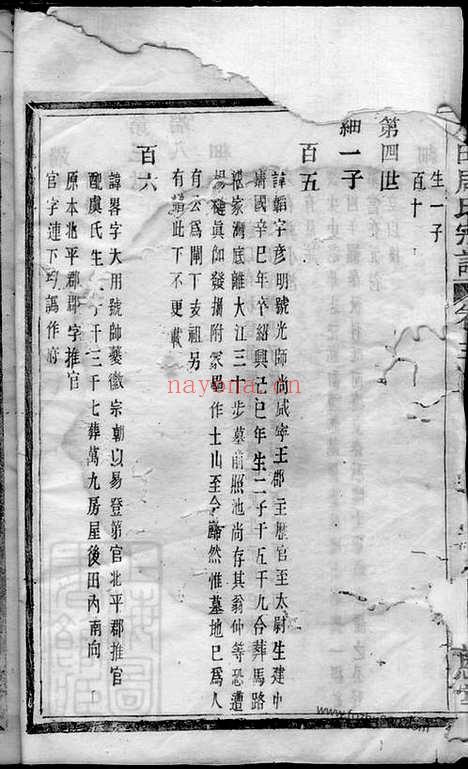 周氏宗譜
生一子
百十
第四世
細一子
百五
諱韜字彥明號光師尚咸寧王郡主歷官至太尉生建中
靖國辛巳年卒紹興己巳年生二子千五千九合葬馬路
裴家灣底離大江三十步墓前照池尚存其翁仲等恐遭
楊璉真伽發掘附冢畢作土山至今巋然惟墓地已為人
有公為閘下亥祖另
有譜此下不更載
百六
諱畧字大用號師藥徽宗朝以易登第官北平郡推官
配虞氏生千三千七葬萬九房屋後田內南向
原本北平郡郡字推官
官字連下均譌作府
nayona.cn